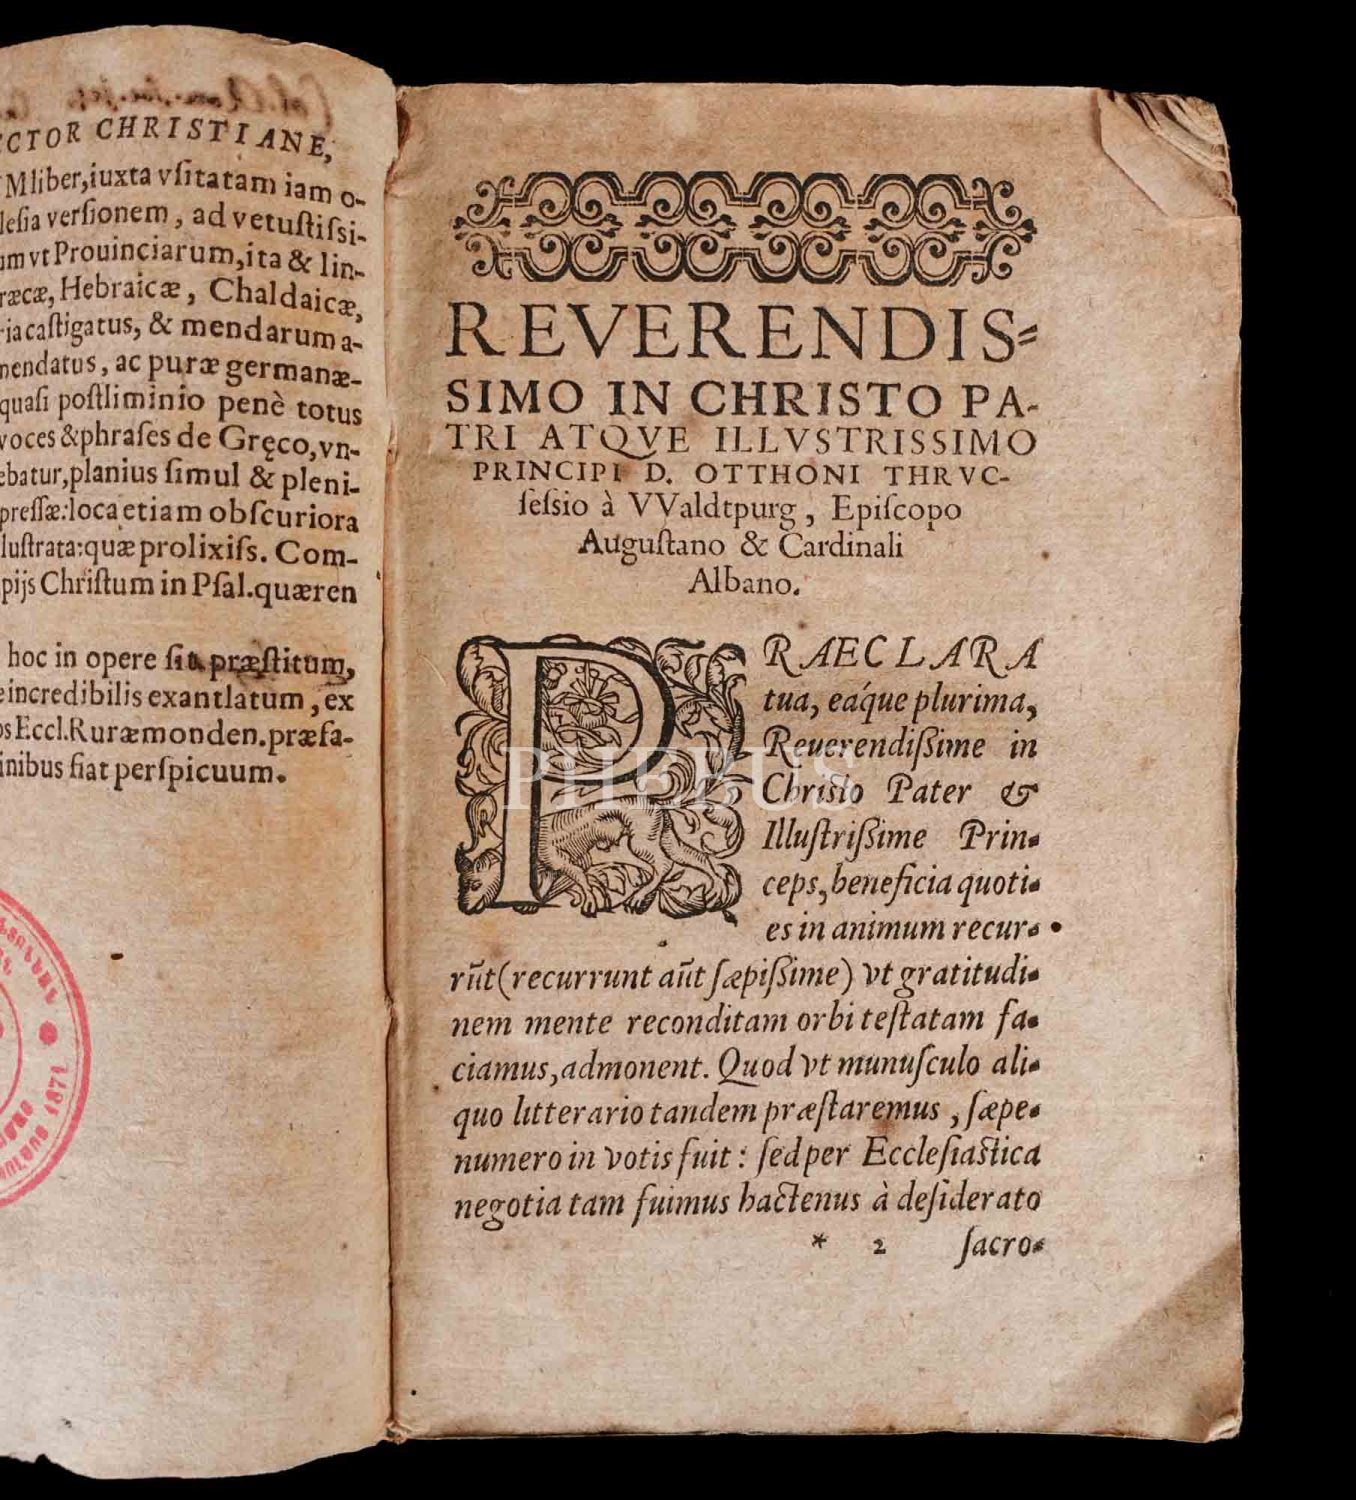 CTOR CHRISTIANE,
M liber, iuxta vſitatam iam o-
leſia verſionem, ad vetuſtiſsi-
um vt Prouinciarum, ita & lin-
ræcæ, Hebraicæ, Chaldaicæ,
ria caſtigatus, & mendarum a-
mendatus, ac puræ germanæ-
quaſi poſtliminio penè totus
voces & phraſes de Gręco, vn-
ebatur, planius ſimul & pleni-
preſſæ: loca etiam obſcuriora
luſtrata: quæ prolixiſs. Com-
pijs Chriſtum in Pſal. quæren
hoc in opere ſit præſtitum,
e incredibilis exantlatum, ex
os Eccl. Ruræmonden. præfa-
inibus fiat perſpicuum.
REVERENDIS-
SIMO IN CHRISTO PA-
TRI ATQVE ILLVSTRISSIMO
PRINCIPI D. OTTHONI THRVC-
ſeſsio à VValdtpurg, Epiſcopo
Auguſtano & Cardinali
Albano.
PRAECLARA
tua, eáque plurima,
Reuerendißime in
Chriſto Pater &
Illuſtrißime Prin-
ceps, beneficia quoti-
es in animum recur-
rūt (recurrunt aūt ſæpißime) vt gratitudi-
nem mente reconditam orbi teſtatam fa-
ciamus, admonent. Quod vt munuſculo ali-
quo litterario tandem præſtaremus, ſæpe-
numero in votis fuit: ſed per Eccleſiaſtica
negotia tam fuimus hactenus à deſiderato
* 2 ſacro-
PHEBUS
1871